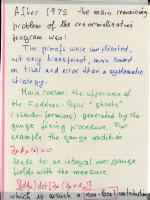 After 1972 the main remaining
problem of the renormalization
program was:
The proofs were complicated,
not very transparent, more based
on trial and error than a systematic
strategy.
Main reason: the appearance of
the Faddeev Popov "ghosts"
(pseudo-fermions) generated by the
gauge fixing procedure. For
example the gauge condition
∂μAμ(x)=0
leads to an integral over gauge
fields with the measure
∏[dAμ] det[∂μ(∂μ+Aμ)]
which is a non-local contribution